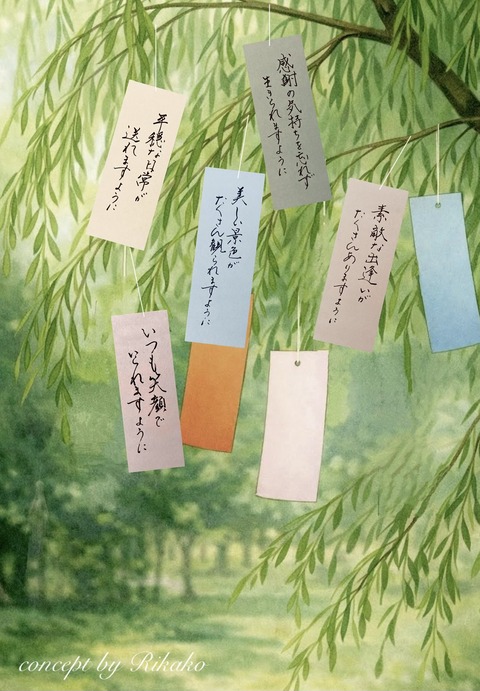 感謝の気持ちを忘れず
生きられますように
平穏な日常が
送れますように
美しい景色が
たくさん観られますように
素敵な出逢いが
たくさんありますように
いつも笑顔で
いられますように
concept by Rikako